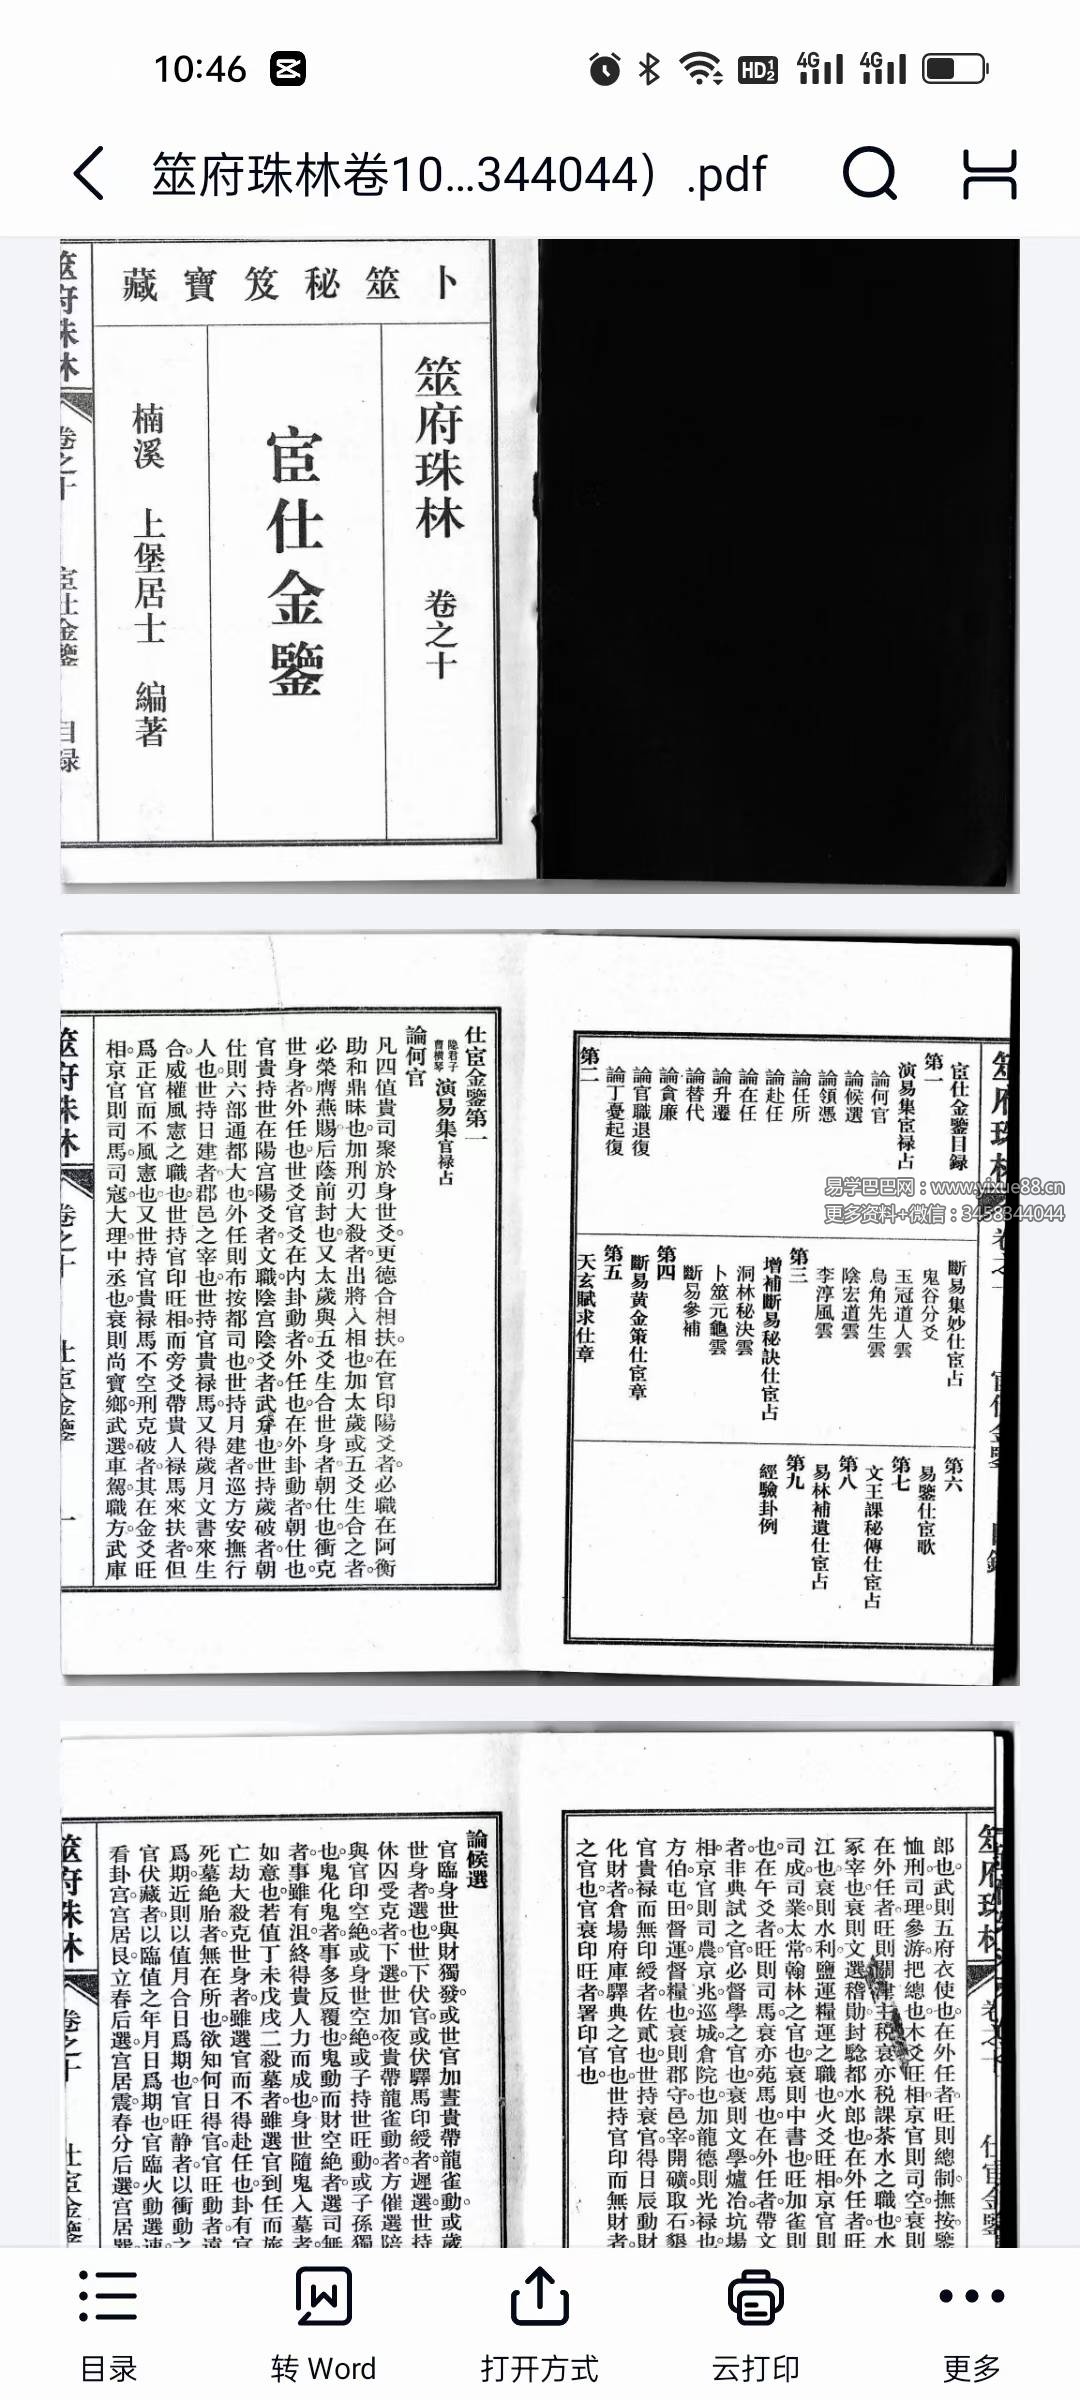 10:46
HD 1 2
4G
4G
筮府珠林卷10...344044）.pdf
卜筮秘笈寶藏
筮府珠林 卷之十
宦仕金鑒
楠溪 上堡居士 編著
筮府珠林 卷之十 宦仕金鑒 目録
宦仕金鑒目録
第一
演易集宦禄占
論何官
論候選
論領憑
論任所
論赴任
論在任
論升遷
論替代
論貪廉
論官職退復
論丁憂起復
第二
斷易集妙仕宦占
鬼谷分爻
玉冠道人雲
鳥角先生雲
陰宏道雲
李淳風雲
第三
增補斷易秘訣仕宦占
洞林秘決雲
卜筮元龜雲
斷易參補
第四
斷易黃金策仕宦章
第五
天玄賦求仕章
第六
易鑒仕宦歌
第七
文王課秘傳仕宦占
第八
易林補遺仕宦占
第九
經驗卦例
易学巴巴网：www.yixue88.cn
更多资料+微信：3458344044
仕宦金鑒第一
隐君子
曹横琴 演易集官禄占
論何官
凡四值貴司聚於身世爻。更德合相扶。在官印陽爻者。必職在阿衡
助和鼎昧也。加刑刃大殺者。出將入相也。加太歲或五爻生合之者。
必榮膺燕賜。后蔭前封也。又太歲與五爻生合世身者。朝仕也。衝克
世身者。外任也。世爻官爻在内卦動者。外任也。在外卦動者。朝仕也。
官貴持世在陽宫陽爻者。文職。陰宫陰爻者。武弁也。世持歲破者。朝
仕。則六部通都大也。外任則布按都司也。世持月建者。巡方安撫行
人也。世持日建者。郡邑之宰也。世持官貴禄馬。又得歲月文書來生
合。威權風憲之職也。世持官印旺相。而旁爻帶貴人禄馬來扶者。但
爲正官而不風憲也。又世持官貴禄馬不空刑克破者。其在金爻旺
相。京官則司馬。司寇。大理。中丞也。衰則尚寶。鄉。武選。車駕。職方。武庫
筮府珠林 卷之十 仕宦金鑒 一
郎也。武則五府衣使也。在外任者。旺則總制。撫按。鑒
恤刑。司理。參游。把總也。木爻旺相。京官則司空。衰則
在外任者。旺則關津主税。衰亦税課茶水之職也。水
冢宰也。衰則文選。稽勛。封驗。都水郎也。在外任者。旺
江也。衰則水利鹽運糧運之職也。火爻旺相。京官則
司成。司業。太常。翰林之官也。衰則中書也。旺加雀則
也。在午爻者。旺則司馬。衰亦苑馬也。在外任者。帶文
者。非典試之官。必督學之官也。衰則文學爐冶坑場
相。京官則司農。京兆。巡城。倉院也。加龍德則光禄也。
方伯。屯田。督運。督糧也。衰則郡守邑宰。開礦取石墾
官貴禄而無印綬者。佐貳也。世持衰官。得日辰動財
化財者。倉場府庫驛典之官也。世持官印而無財者。
之官也。官衰印旺者。署印官也。
論候選
官臨身世與財獨發。或世官加晝貴帶龍雀動。或歲
世身者。選也。世下伏官。或伏驛馬印綬者。遲選。世持
休囚受克者。下選。世加夜貴帶龍雀動者。方催選。陪
與官印空絶。或身世空絶。或子持世旺動。或子孫獨
也。鬼化鬼者。事多反覆也。鬼動而財空絶者。選司無
者。事雖有沮。終得貴人力而成也。身世隨鬼入墓者
如意也。若值丁未戊戌二殺墓者。雖選官到任而旅
亡劫大殺克世身者。雖選官而不得赴任也。卦有官
死墓絶胎者。無在所也。欲知何日得官。官旺動者。遠
爲期。近則以值月合日爲期也。官旺静者。以衝動之
官伏藏者。以臨值之年月日爲期也。官臨火動選速
看卦宫。宫居艮。立春后選。宫居震。春分后選。宫居巽
目录
转 Word
打开方式
云打印
更多